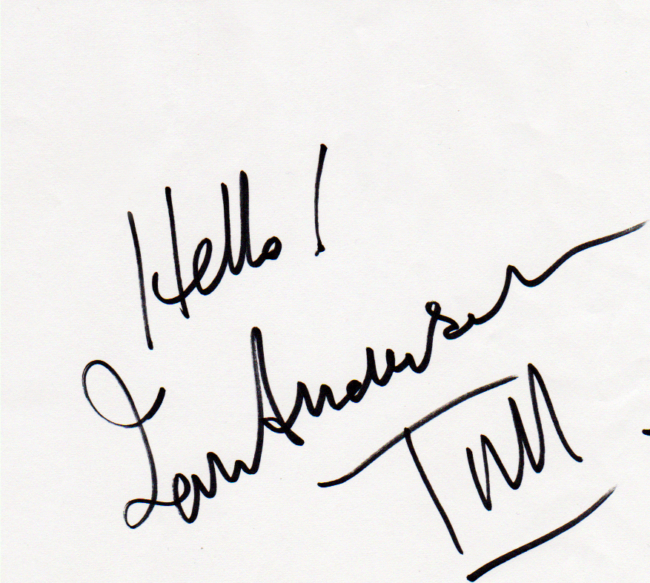 Hello!
Ian Anderson
Tull